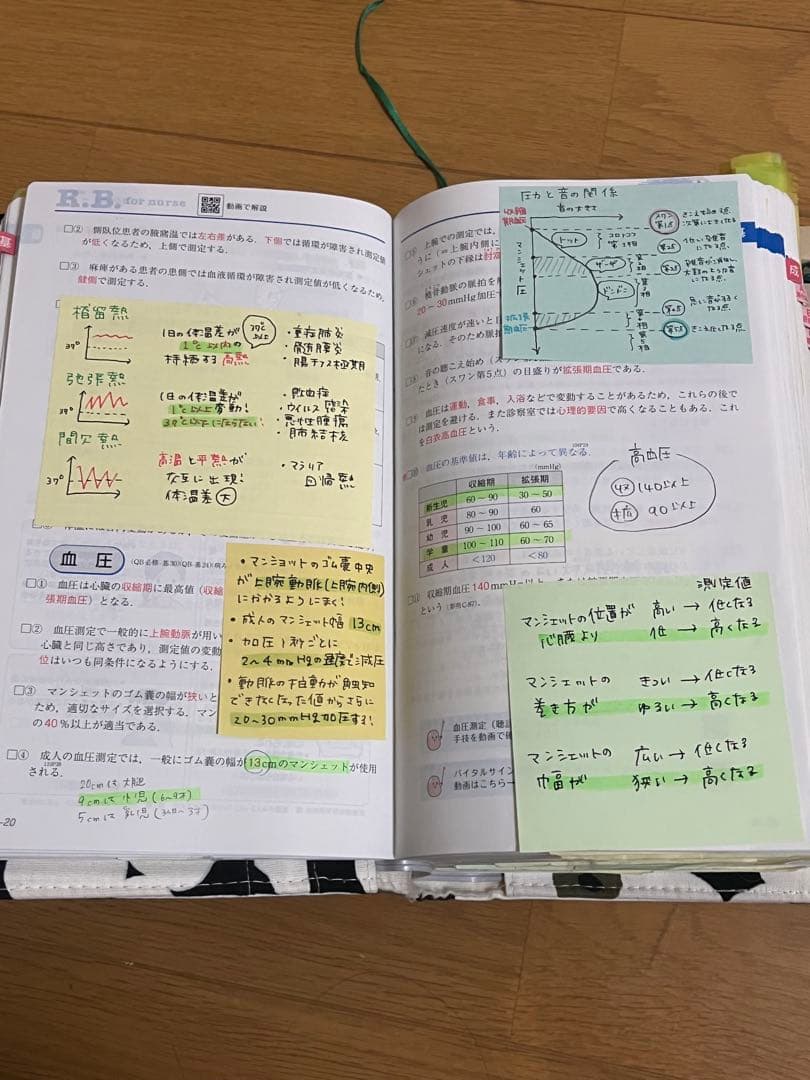 R.B. for nurse
動画で解説
□② 側臥位患者の腋窩温では左右差がある.下側では循環が障害され測定値
が低くなるため,上側で測定する.
□③ 麻痺がある患者の患側では血液循環が障害され測定値が低くなるため,
健側で測定する.
稽留熱
39°
1日の体温差が
1℃以内の
持続する高熱
39℃以上
・重症肺炎
・髄膜炎
・腸チフス極期
弛張熱
39°
1日の体温差が
1℃以上変動!
37℃以下にならない!
・敗血症
・ウイルス感染
・悪性腫瘍
・肺結核
間欠熱
37°
高温と平熱が
交互に出現!
体温差大
・マラリア
回帰熱
血圧
□① 血圧は心臓の収縮期に最高値(収縮
張期血圧)となる.
□② 血圧測定で一般的に上腕動脈が用い
心臓と同じ高さであり,測定値の変動
位はいつも同条件になるようにする.
□③ マンシェットのゴム嚢の幅が狭いと
ため,適切なサイズを選択する.マン
の40%以上が適当である.
□④ 成人の血圧測定では,一般にゴム嚢の幅が13cmのマンシェットが使用
される.
20cmは大腿
9cmは小児(6〜9才)
5cmは乳児
-20
・マンショットのゴム嚢中央
が上腕動脈(上腕内側)
にかかるようにまく!
・成人のマンシェット幅13cm
・加圧1秒ごとに
2〜4mmHgの速度で減圧
・動脈の拍動が触知
できなくなった値からさらに
20〜30mmHg加圧する!
圧力と音の関係
音の大きさ
収縮期血圧
マンシェット圧
拡張期血圧
トントン
ザーザー
ドンドン
コロトコフ
第1相
第2相
第3相
第4相
第5相
スワン
第1点
きこえ始める点
次第に大きくなる
第2点
になる点.
第3点
になる点.
第4点
なる点
第5点
きこえなくなる点.
上腕での測定では,
さに(=上腕内側に
シェットの下縁は肘窩
橈骨動脈の脈拍を
20〜30mmHg加圧す
減圧速度が速いと目
になる.そのため脈拍
音の聴こえ始め(スワン
たとき(スワン第5点)の目盛りが拡張期血圧である.
血圧は運動,食事,入浴などで変動することがあるため,これらの後で
は測定を避ける.また診察室では心理的要因で高くなることもある.これ
を白衣高血圧という.
血圧の基準値は,年齢によって異なる.
(mmHg)
収縮期 拡張期
新生児 60〜90 30〜50
乳児 80〜90 60
幼児 90〜100 60〜65
学童 100〜110 60〜70
成人 <120 <80
高血圧
収 140以上
拡 90以上
収縮期血圧140mmHg以上
という
測定値
マンシェットの位置が 高い → 低くなる
心臓より 低 → 高くなる
マンシェットの きつい → 低くなる
巻き方が ゆるい → 高くなる
マンシェットの 広い → 低くなる
巾幅が 狭い → 高くなる
血圧測定(聴診
手技を動画で確
バイタルサイン
動画はこちら→
基
成